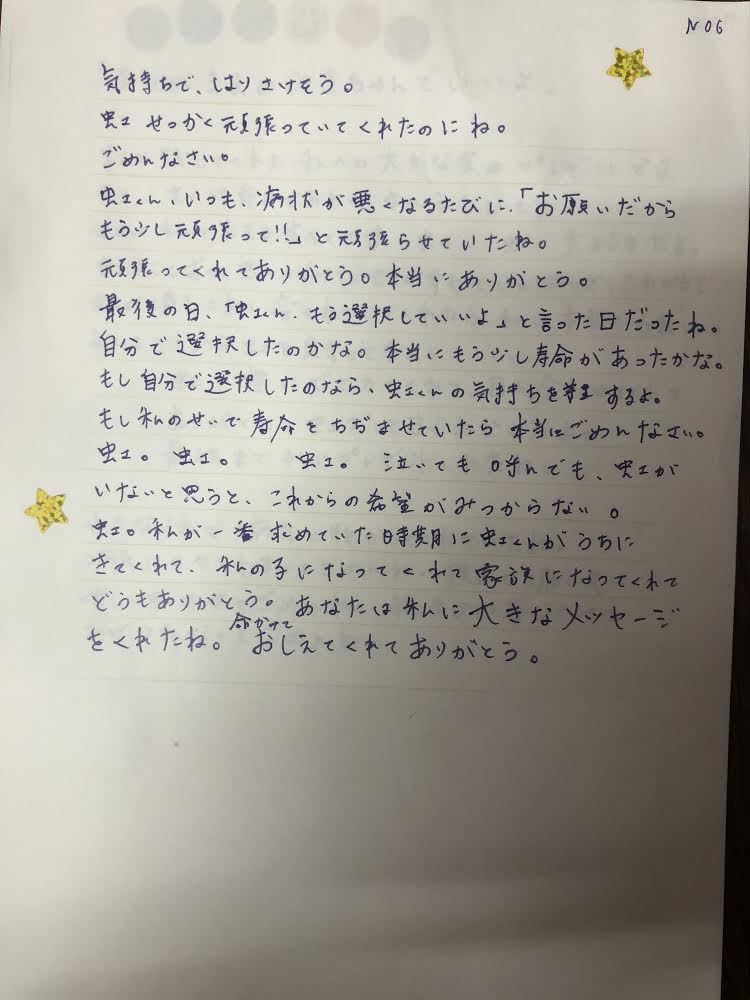 No6
気持ちで、はりさけそう。
虹 せっかく頑張っていてくれたのにね。
ごめんなさい。
虹くん、いつも、病状が悪くなるたびに、「お願いだから
もう少し頑張って!!」と頑張らせていたね。
頑張ってくれてありがとう。本当にありがとう。
最後の日、「虹くん、もう選択していいよ」と言った日だったね。
自分で選択したのかな。本当にもう少し寿命があったかな。
もし自分で選択したのなら、虹くんの気持ちを尊重するよ。
もし私のせいで寿命をちぢませていたら本当にごめんなさい。
虹。 虹。 虹。 泣いても呼んでも、虹が
いないと思うと、これからの希望がみつからない。
虹。私が一番求めていた時期に虹くんがうちに
きてくれて、私の子になってくれて家族になってくれて
どうもありがとう。あなたは私に大きなメッセージ
をくれたね。命かけておしえてくれてありがとう。